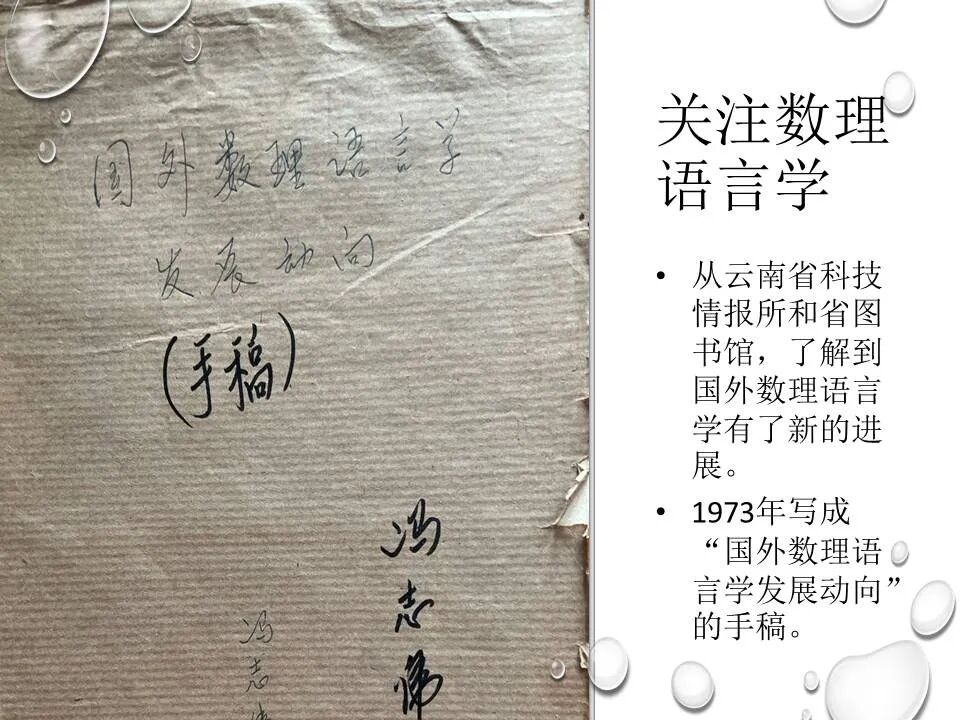 国外数理语言学
发展动向
(手稿)
冯志伟
冯志
关注数理
语言学
• 从云南省科技
情报所和省图
书馆，了解到
国外数理语言
学有了新的进
展。
• 1973年写成
“国外数理语
言学发展动向”
的手稿。